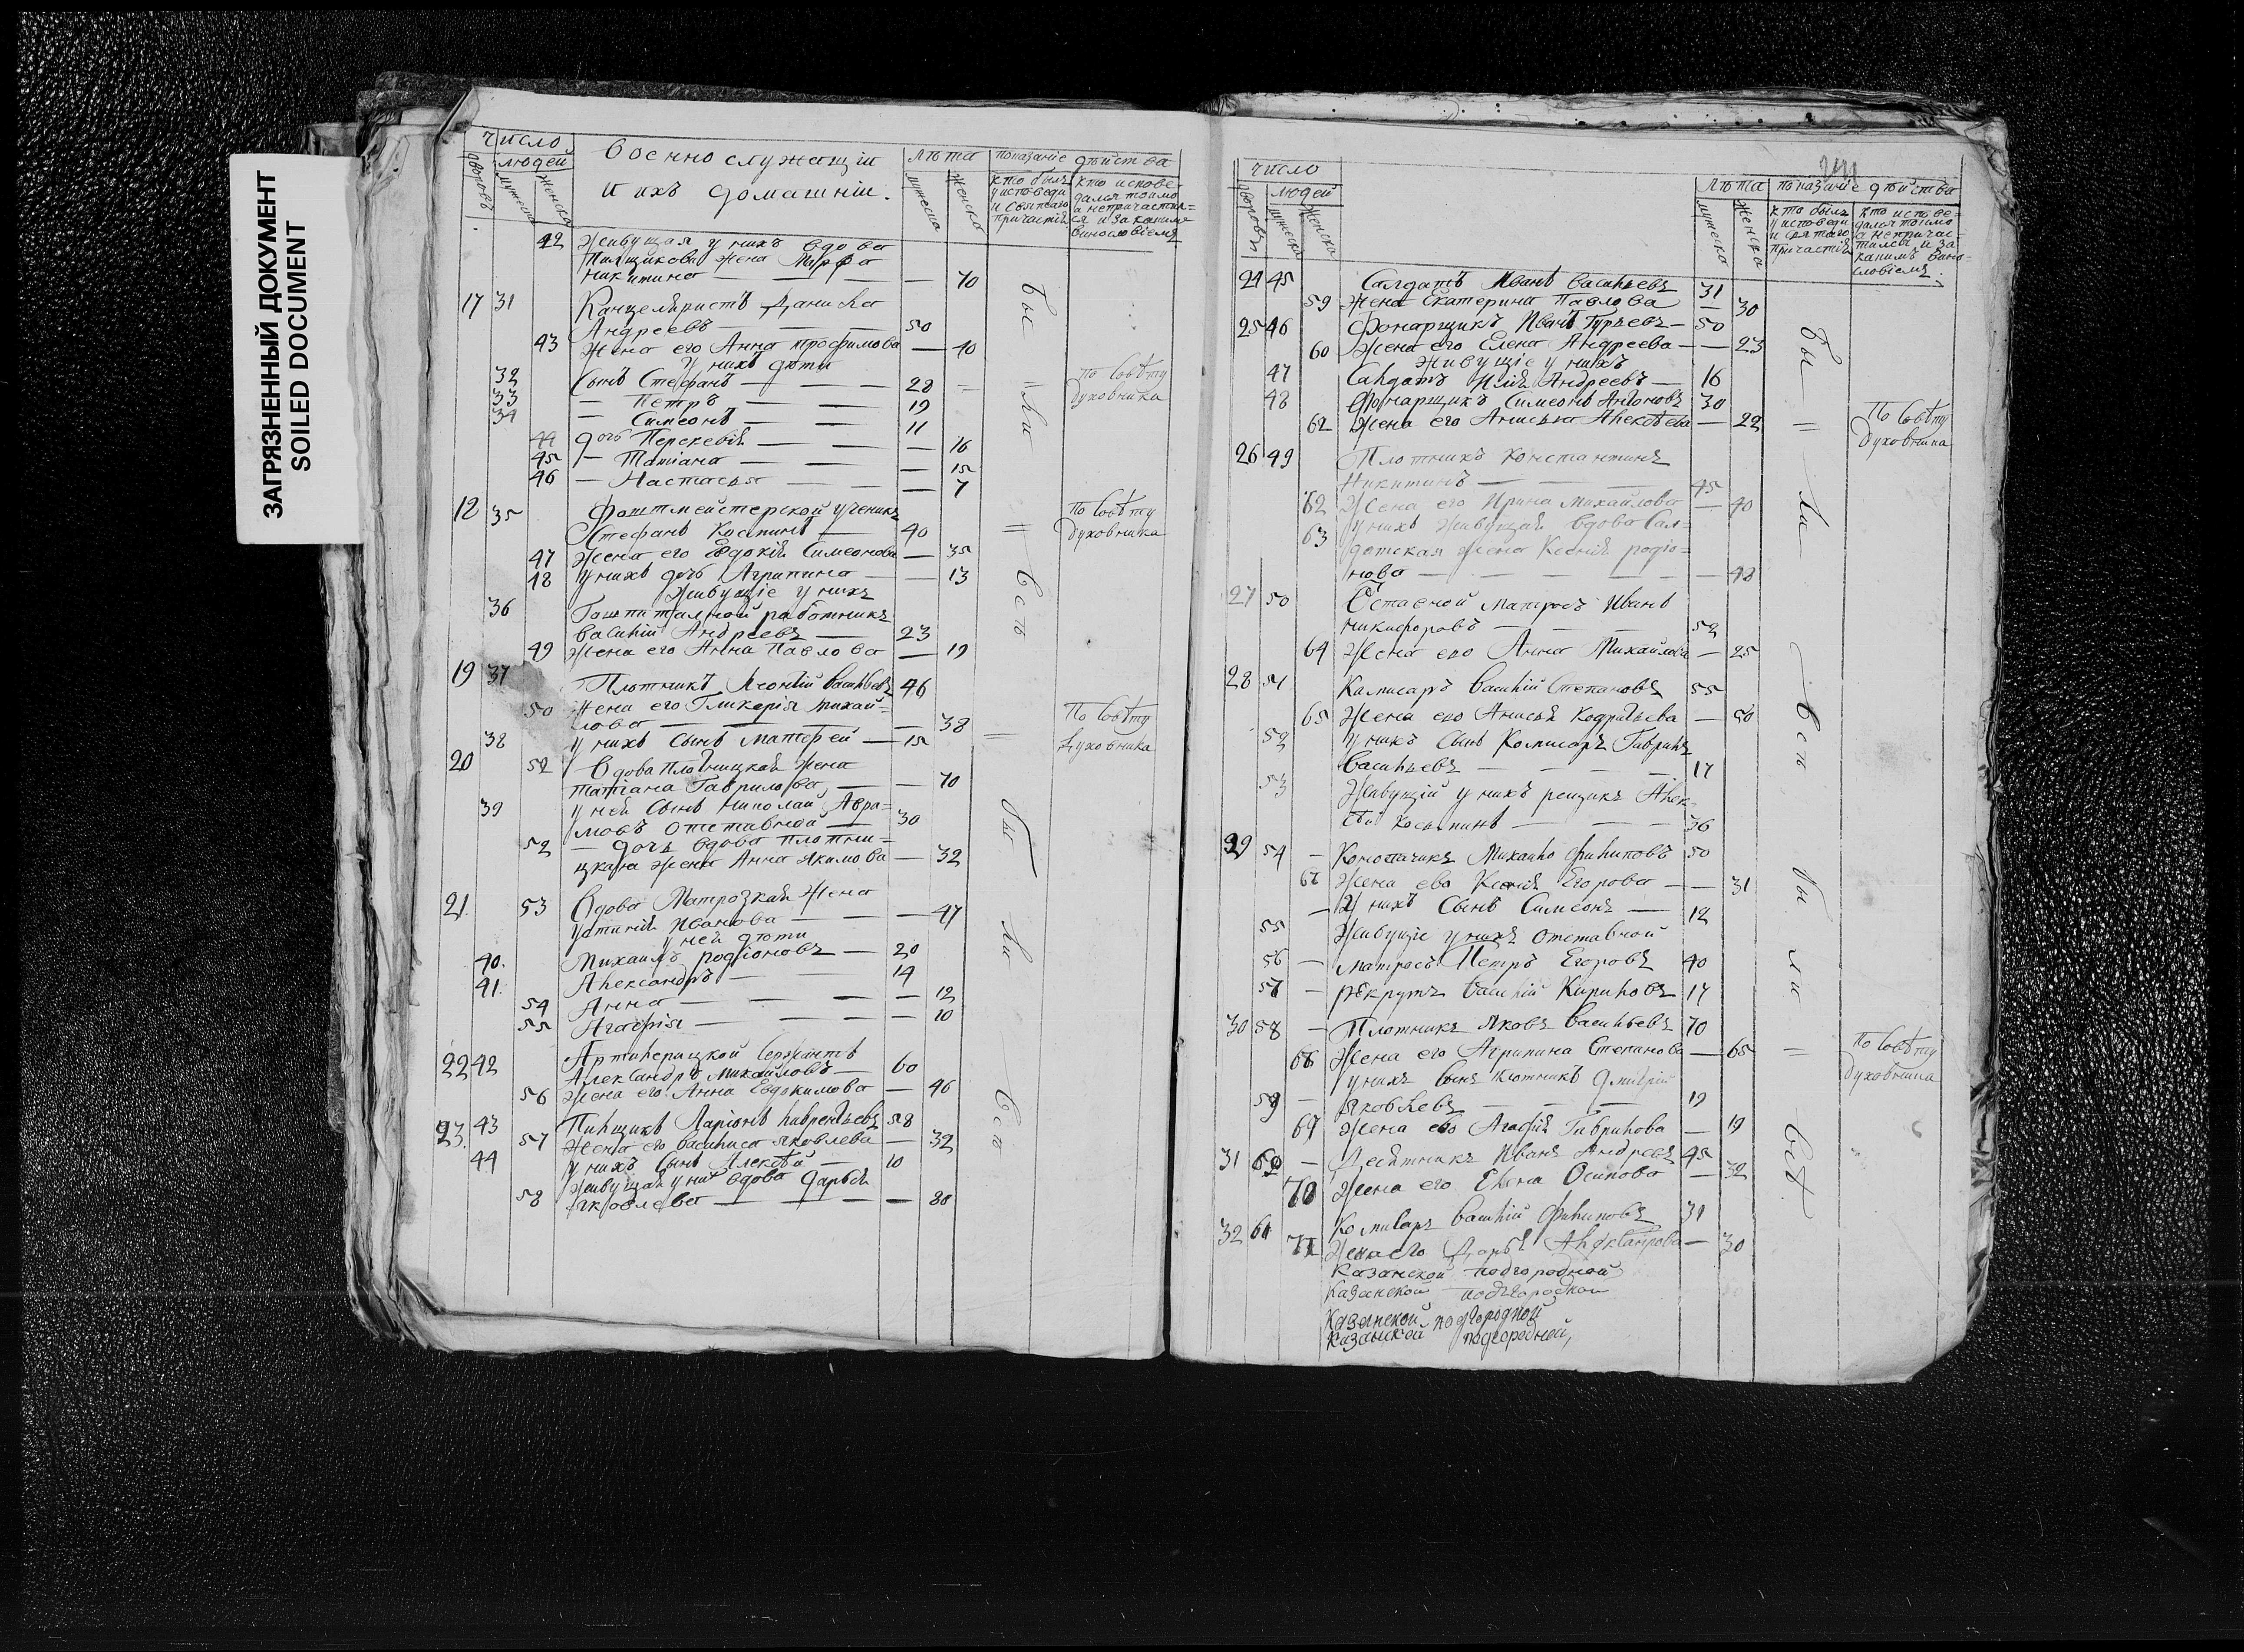 ЗАГРЯЗНЕННЫЙ ДОКУМЕНТ
SOILED DOCUMENT
число
людей
дворовъ
мужеска
женска
военно служащіи
и ихъ домашніи.
лѣта
мужеска
женска
показаніе дѣйства
кто былъ
у исповеди
и святаго
причастія
кто испове-
дался токмо
а непричастил=
ся и за каким
винословіемъ
42 Живущая у нихъ вдова
жена Марфа
никитина — — 70
17 31 Канцеляристъ Данила
Андреевъ — — — 50
43 Жена его Анна трофимова — 40
У нихъ дети
32 Сынъ Стефанъ — — — 28 = по совѣту
33 — Петръ — — 19 духовника
34 — Симеонъ — — 11
44 дочь Перскевія — — — 16
45 — Татіана — — — 15
46 — Настасья — — — 7
18 35 ученикъ по совѣту
Стефанъ — 40 = духовника
47 Жена его Евдокія Симеонова — 35
48 у нихъ дочь Агрипина — — 13
Живущіе у нихъ
36 Гошпиталной работникъ
василій Андреевъ — 23
49 Жена его Анна Павлова — 19
19 37 Плотникъ Леонтій васильевъ 46
50 Жена его Гликерія михай=
лова — — — — 38 по совѣту
38 у нихъ сынъ Матфей — 15 = духовника
20 51 Вдова плотницкая жена
татіана Гаврилова — — 70
39 у ней сынъ николай Авра=
мовъ отставной — 30
52 — дочь вдова плотни=
цкая жена Анна якимова — 32
21. 53 Вдова Матрозкая жена
устинія Иванова — — — 47
у ней дѣти
40. михаилъ родіоновъ — 20
41. Александръ — 14
54 Анна — — — — 12
55 Агафія — — — — 10
22 42 Артилерицкой сержантъ
Александръ михайловъ — 60
56 Жена его Анна Евдокимова — 46
23. 43 Пильщикъ Ларіонъ лаврентьевъ 58
57 Жена его василиса яковлева — 32
44 у нихъ сынъ Алексѣй — 10
Живущая у них вдова дарья
58 яковлева — — — — 80
бы
ли
всѣ
бы
ли
всѣ
число
людей
дворовъ
мужеска
женска
лѣта
мужеска
женска
показаніе дѣйства
кто былъ
у исповеди
и святаго
причастія
кто испове=
дался токмо
а непричас=
тился и за
какимъ вино=
словіемъ.
24 45 Салдатъ Иванъ васильевъ 31
59 Жена Екатерина Павлова — 30
25 46 Фонарщикъ Иванъ Гурьевъ — 50
60 Жена его Елена Андреева — — 23
Живущіе у нихъ
47 Салдатъ Илія Андреевъ — 16
48 Фонарщикъ Симеонъ Антоновъ 30 по совѣту
62 Жена его Анисья Алексѣева — 22 = духовника
26 49 Плотникъ константинъ
Никитинъ — — — 45
62 Жена его Ирина михайлова — 40
63 у нихъ живущая вдова сал=
датская жена Ксенія родіо=
нова — — — — — 48
27 50 Отставной матросъ Иванъ
никифоровъ — — — 52
64 Жена ево Анна Михайлова — 25
28 51 Камисаръ василій Степановъ 55
65 Жена ево Анисья Кодратьева — 50
52 у нихъ сынъ Комисаръ Гаврилъ
васильевъ — — — — 17
53 Живущій у нихъ рещикъ Алек=
сѣй — — — 36
29 54 — Конопатчикъ Михаило филиповъ 50
Жена ево Ксенія Егорова — — 31
55 — у нихъ сынъ Симеонъ — 12
Живущіе у нихъ отставной
56 — матросъ Петръ Егоровъ 40
57 — рекрутъ василій Кириловъ 17
30 58 — Плотникъ Яковъ васильевъ 70
68 Жена его Агрипина Степанова — 65 = по совѣту
у нихъ сынъ плотникъ дмитрій духовника
59 — яковлевъ — — — 19
69 Жена ево Агафія Гаврилова — 19
31 60 — Десятникъ Иванъ Андреевъ 45
70 Жена его Елена Осипова — 32
32 61 Комисаръ василій филиповъ 31
71 Жена его Дарья Александрова — 30
казанской подгородной
казанской подгородной
казанской подгородной
казанской подгородной,
бы
ли
всѣ
бы
ли
всѣ.